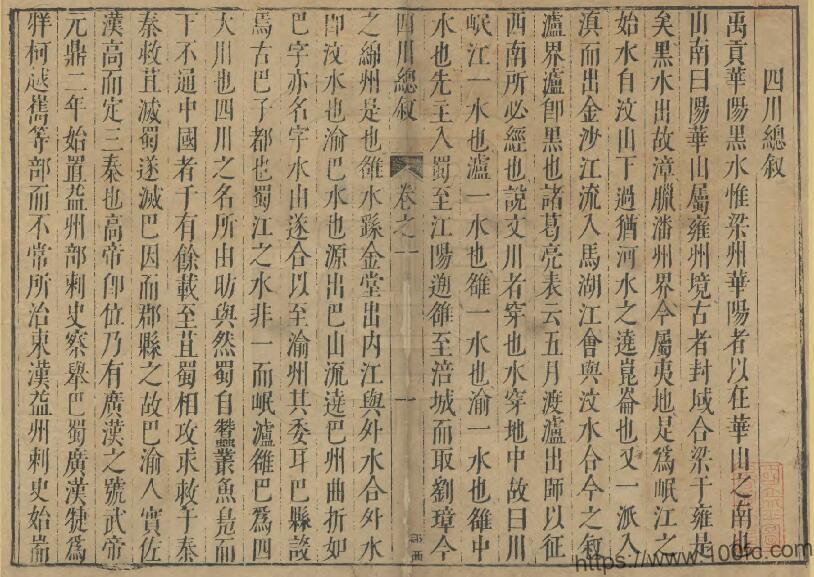 四川總叙
禹貢華陽黑水惟梁州華陽者以在華山之南也
山南曰陽華山屬雍州境古者封域合梁于雍是
矣黑水出故漳臘潘州界今屬夷地是爲岷江之
始水自汶山下過猶河水之遶崑崙也又一派入
滇而出金沙江流入馬湖江會與汶水合今之敘
瀘界瀘卽黑也諸葛亮表云五月渡瀘出師以征
西南所必經也說文川者穿也水穿地中故曰川
岷江一水也瀘一水也雒一水也渝一水也雒中
水也先主入蜀至江陽遡雒至涪城而取劉璋今
四川總叙 卷之一 一
之綿州是也雒水繇金堂出内江與外水合外水
卽汶水也渝巴水也源出巴山流遶巴州曲折如
巴字亦名字水山遂合以至渝州其委耳巴縣設
焉古巴子都也蜀江之水非一而岷瀘雒巴爲四
大川也四川之名所由昉與然蜀自蠶叢魚鳧而
下不通中國者千有餘載至苴蜀相攻求救于秦
秦救苴滅蜀遂滅巴因而郡縣之故巴渝人實佐
漢高而定三秦也高帝卽位乃有廣漢之號武帝
元鼎二年始置益州部刺史察舉巴蜀廣漢犍爲
牂柯越嶲等部而不常所治東漢益州刺史始崙
https://www.100fd.com